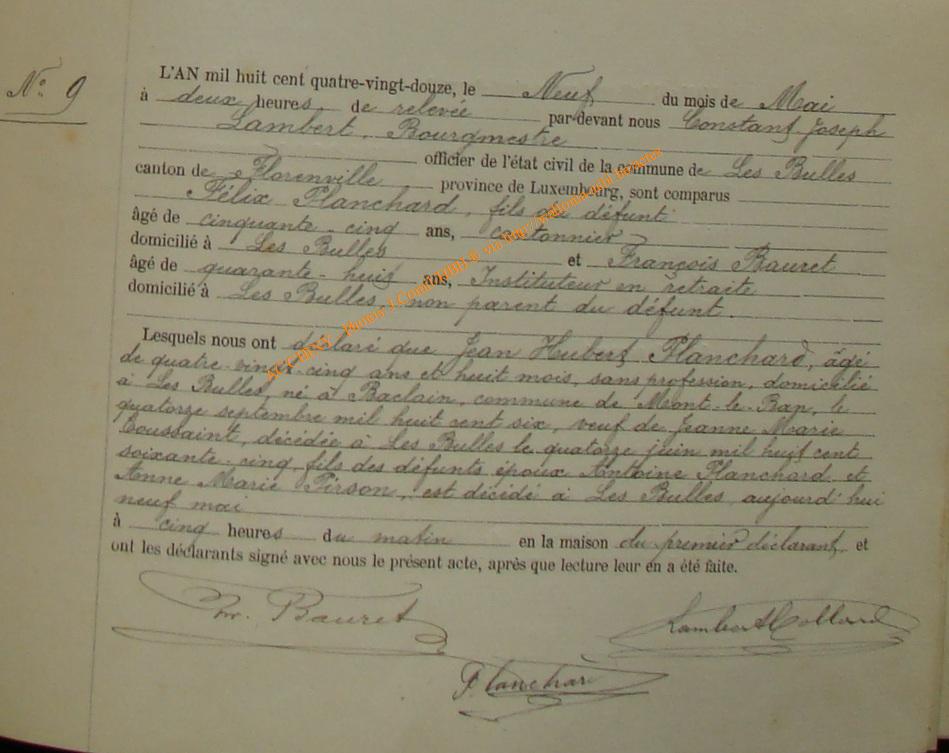 N° 9
L'AN mil huit cent quatre-vingt-douze, le Neuf du mois de Mai
à deux heures, de relevée par-devant nous Constant Joseph
Lambert, Bourgmestre
officier de l'état civil de la commune de Les Bulles
canton de Florenville province de Luxembourg, sont comparus
Félix Planchard, fils du défunt
âgé de cinquante-cinq ans, cantonnier
domicilié à Les Bulles et François Bauret
âgé de quarante-huit ans, Instituteur en retraite
domicilié à Les Bulles, non parent du défunt.
Lesquels nous ont déclaré que Jean Hubert Planchard, âgé
de quatre-vingt-cinq ans et huit mois, sans profession, domicilié
à Les Bulles, né à Baclain, commune de Mont-le-Ban, le
quatorze septembre mil huit cent six, veuf de Jeanne Marie
Toussaint, décédée à Les Bulles le quatorze juin mil huit cent
soixante-cinq, fils des défunts époux Antoine Planchard et
Anne Marie Pirson, est décidé à Les Bulles, aujourd'hui
neuf mai
à cinq heures du matin en la maison du premier déclarant, et
ont les déclarants signé avec nous le présent acte, après que lecture leur en a été faite.
Bauret
Lambert Collard
Planchard